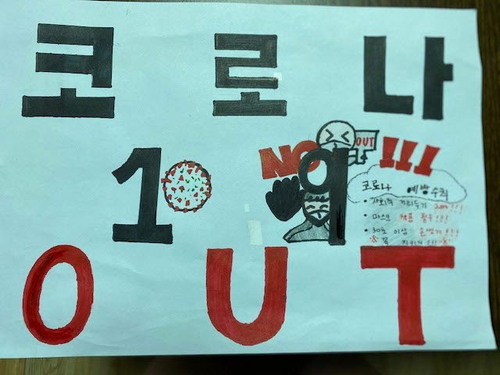 코로나
19
OUT
NO
OUT
!!!
코로나 예방 수칙
• 사회적 거리두기 2m!!!
• 마스크 착용 필수!!!
• 30초 이상 손씻기!!!
꼭 지키기!!!